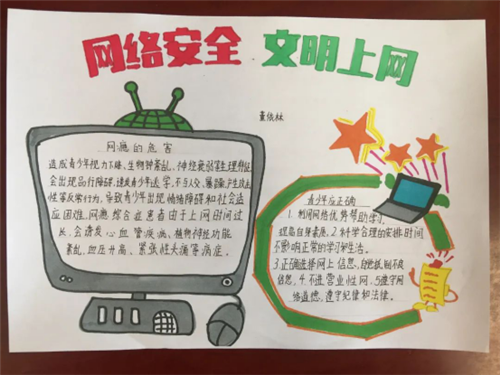 网络安全 文明上网
董依林
网瘾的危害
造成青少年视力下降、生物钟紊乱、神经衰弱等生理特征
会出现品行障碍，速度青少年逃学、不与人
性等反常行为，导致青少年出现情绪障碍和社会适
应困难、网瘾综合症患者由于上网时间过
长，会诱发心血管疾病、植物神经功能
紊乱、血压升高、紧张性头痛等病症。
青少年应正确
1.利用网络优势帮助学习，
提高自身素质。2.科学合理的安排时间
不影响正常的学习和生活。
3.正确选择网上信息，自觉抵制不良
信息。4.不进营业性网。5.遵守网
络道德，遵守纪律和法律。